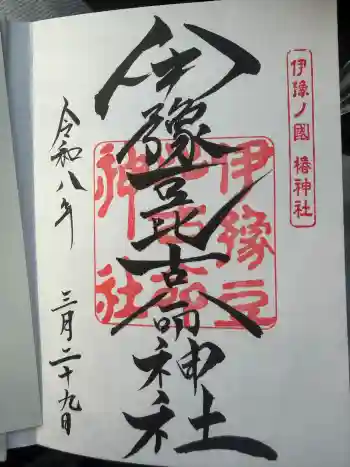 伊豫ノ國 椿神社
伊豫豆比古命神社
伊豫豆
神社
令和八年
三月二十九日